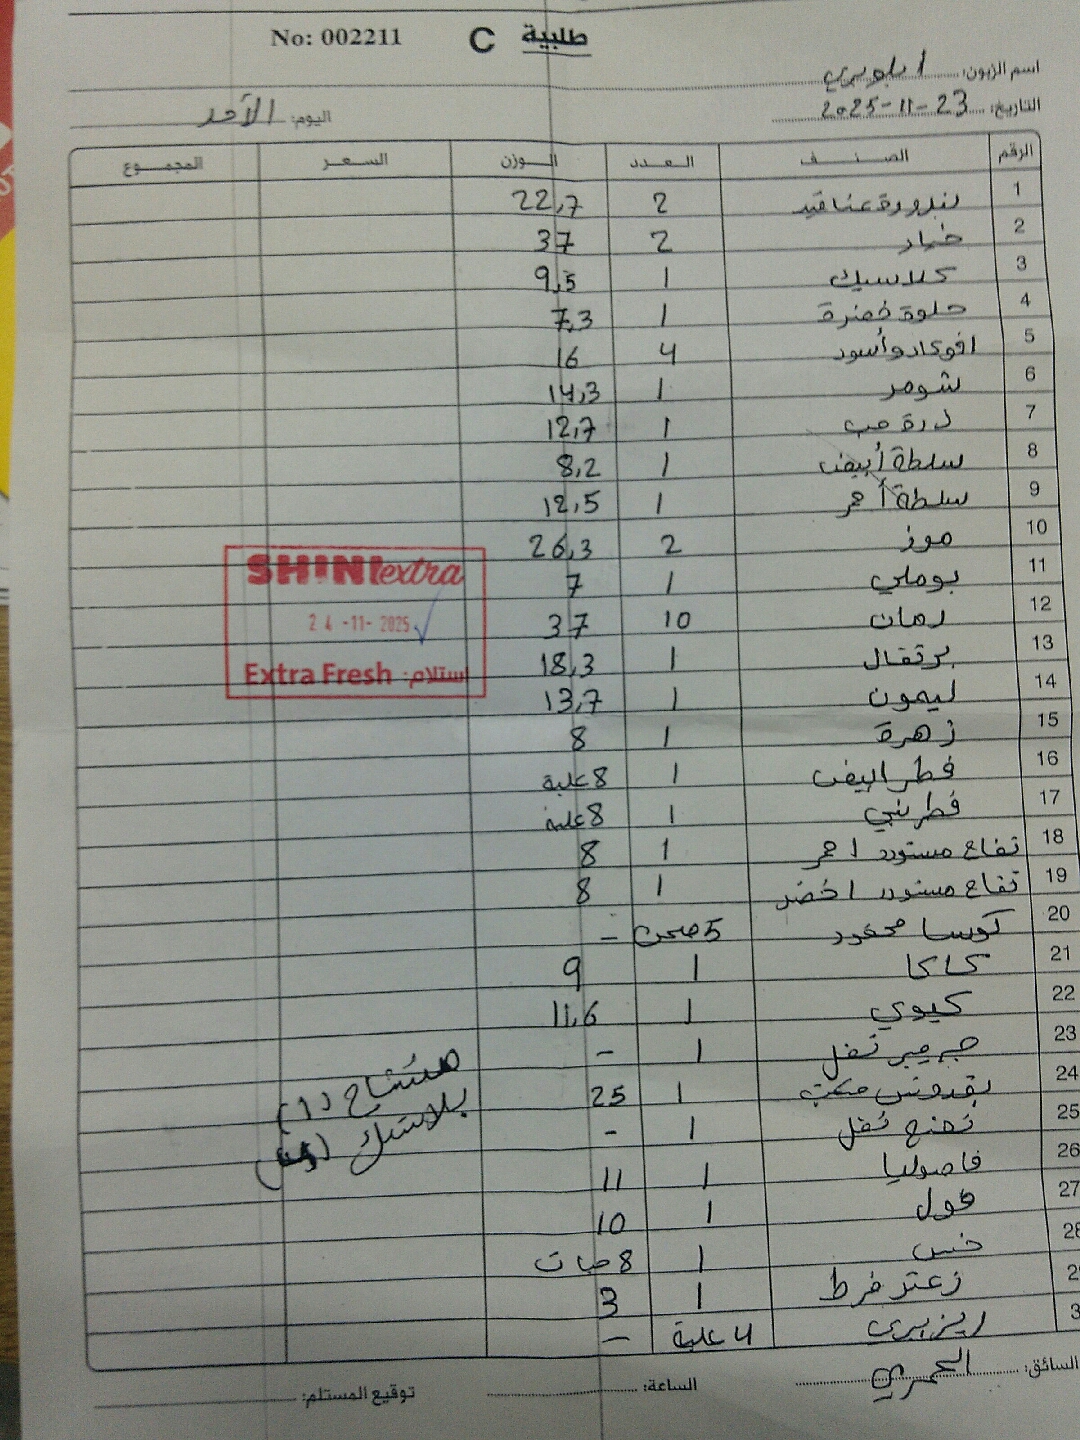 طلبية C No: 002211
اسم الزبون:
التاريخ: 23-11-2025 اليوم: الأحد
الرقم الصنف العدد الوزن السعر المجموع
1 بندورة عناقيد 2 22,7
2 خيار 2 37
3 كلاسيك 1 9,5
4 حلوة خضرة 1 7,3
5 افوكادو أسود 4 16
6 شومر 1 14,3
7 درة حب 1 12,7
8 سلطة أبيض 1 8,2
9 سلطة أحمر 1 12,5
10 موز 2 26,3
11 بوملي 1 7
12 رمان 10 37
13 برتقال 1 18,3
14 ليمون 1 13,7
15 زهرة 1 8
16 فطر ابيض 1 8 علبة
17 فطر بني 1 8 علبة
18 تفاح مستورد احمر 1 8
19 تفاح مستورد اخضر 1 8
20 كوسا محفور 5 صحن -
21 كاكا 1 9
22 كيوي 1 11,6
23 جرجير تفل 1 -
24 بقدونس مكتب 1 25
25 نعنع تفل 1 -
26 فاصوليا 1 11
27 فول 1 10
28 خس 1 8 حبات
2 زعتر فرط 1 3
3 4 علبة -
مشتاح (1)
بلاستيك
SHINI extra
24-11-2025
Extra Fresh استلام:
السائق: العمري الساعة: توقيع المستلم: